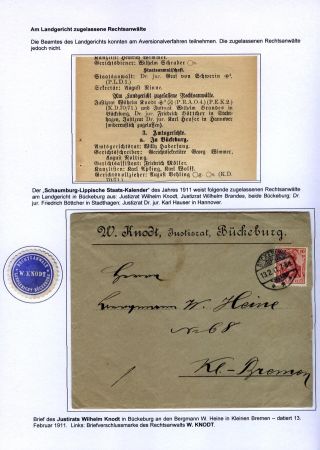 Am Landgericht zugelassene Rechtsanwälte
Die Beamten des Landgerichts konnten am Aversionalverfahren teilnehmen. Die zugelassenen Rechtsanwälte
jedoch nicht.
Kanzlist: Heinrich Wömmer.
Gerichtsdiener: Wilhelm Schrader
Staatsanwaltschaft.
Staatsanwalt: Dr. jur. Graf von Schwerin
(L.D.2).
Sekretär: August Kleine.
Am Landgericht zugelassene Rechtsanwälte.
Justizrat Wilhelm Knodt (P.R.A.O.4.) (P.E.K.2.)
(K.D.70/71.) und Justizrat Wilhelm Brandes in
Bückeburg, Dr. jur. Friedrich Böttcher in Stadt-
hagen, Justizrat Dr. jur. Karl Hauser in Hannover
(widerruflich zugelassen).
3. Amtsgerichte.
a. Zu Bückeburg.
Amtsgerichtsrat: Willy Haberland.
Gerichtsschreiber: Gerichtssekretäre Georg Wimmer,
August Kölling.
Gerichtsassistent: Friedrich Möller.
Kanzlist: Karl Köpller, Adolf Knoll.
Gerichtsdiener: August Bohling
(K.D.
Der ‚Schaumburg-Lippische Staats-Kalender' des Jahres 1911 weist folgende zugelassenen Rechtsanwälte
am Landgericht in Bückeburg aus: Justizrat Wilhelm Knodt, Justizrat Wilhelm Brandes, beide Bückeburg; Dr.
jur. Friedrich Böttcher in Stadthagen, Justizrat Dr. jur. Karl Hauser in Hannover.
W. Knodt, Justizrat, Bückeburg.
Herrn
Bergmann W. Heine
No 68
Kl-Bremen
W. KNODT
Brief des Justirats Wilhelm Knodt in Bückeburg an den Bergmann W. Heine in Kleinen Bremen – datiert 13.
Februar 1911. Links: Briefverschlussmarke des Rechtsanwalts W. KNODT.